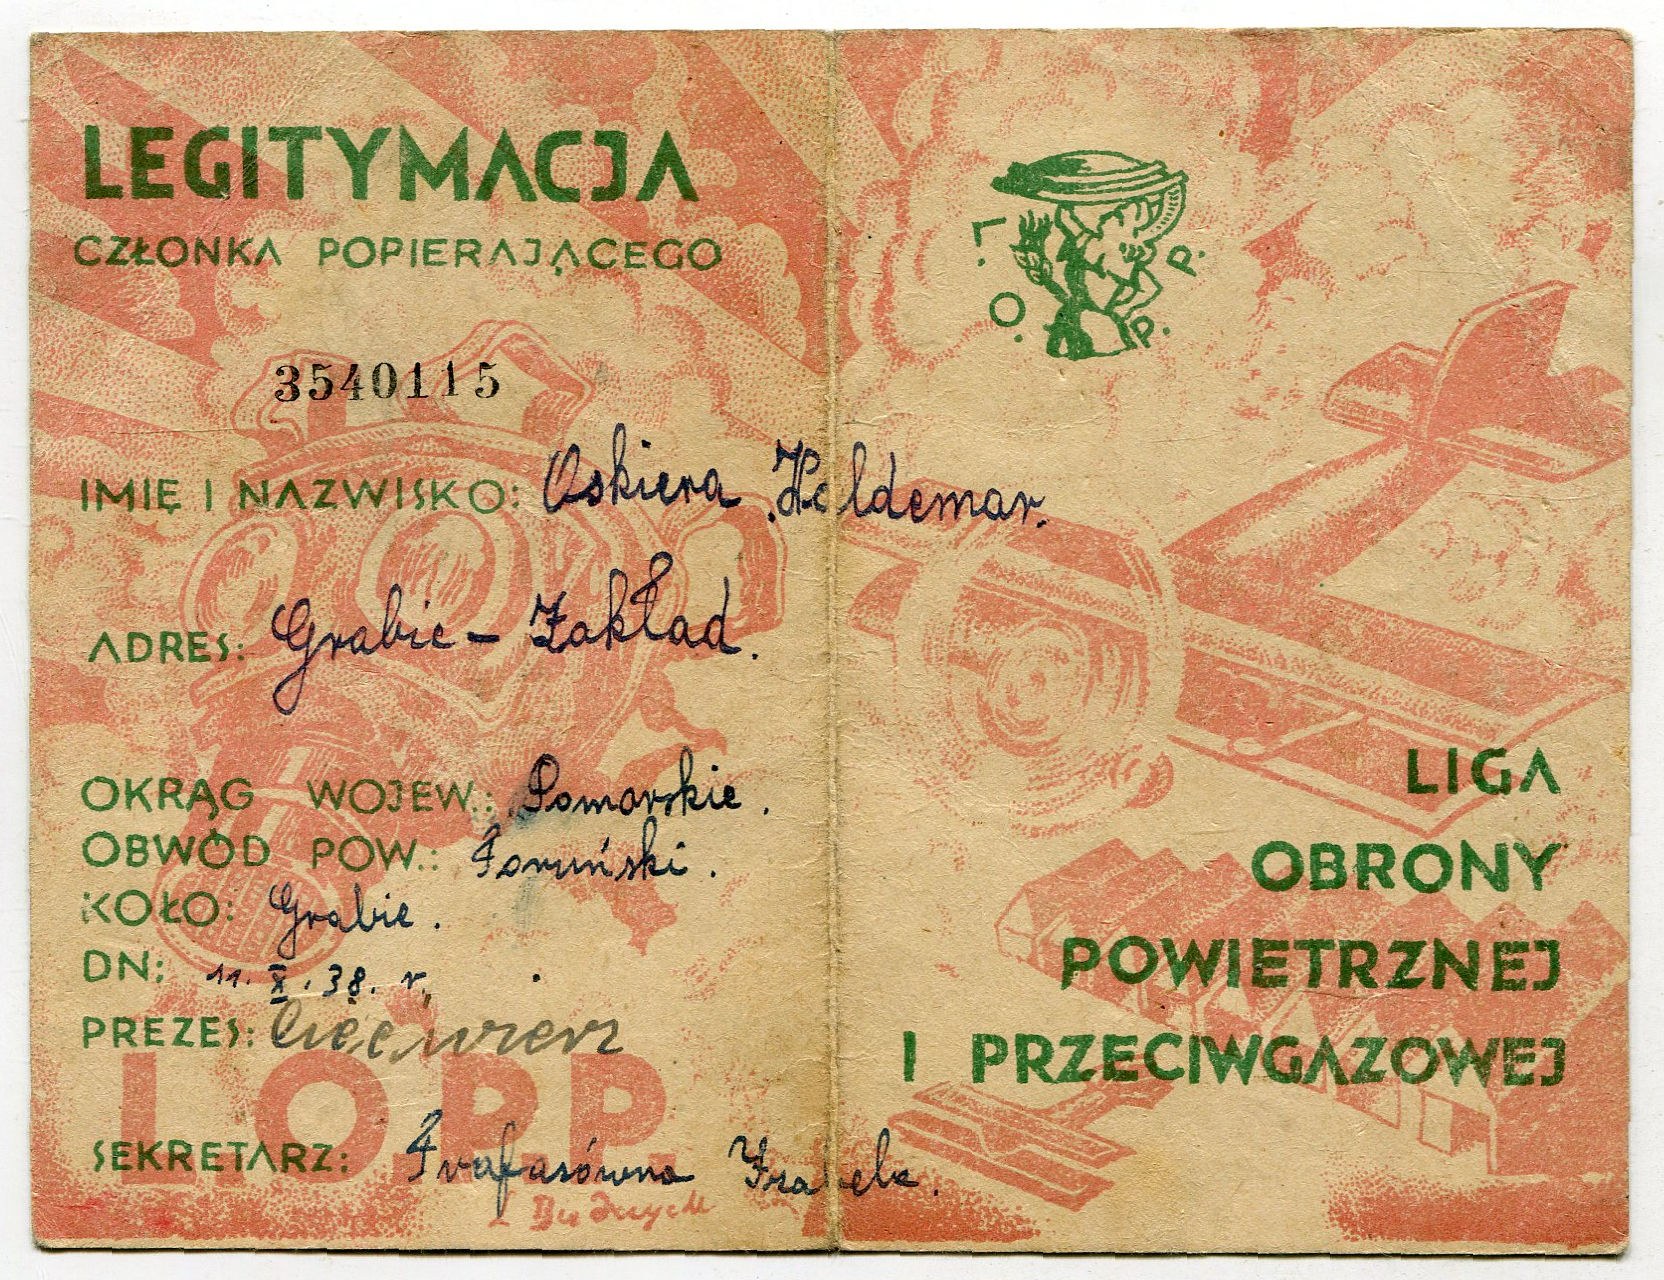 LEGITYMACJA
CZŁONKA POPIERAJĄCEGO
3540115
IMIĘ I NAZWISKO: Oskiera Waldemar.
ADRES: Grabie – Zakład.
OKRĄG WOJEW.: Pomorskie.
OBWÓD POW.: Toruński.
KOŁO: Grabie.
DN: 11. X. 38. r.
PREZES:
L.O.P.P.
SEKRETARZ: Izabela.
L. O. P. P.
LIGA
OBRONY
POWIETRZNEJ
I PRZECIWGAZOWEJ